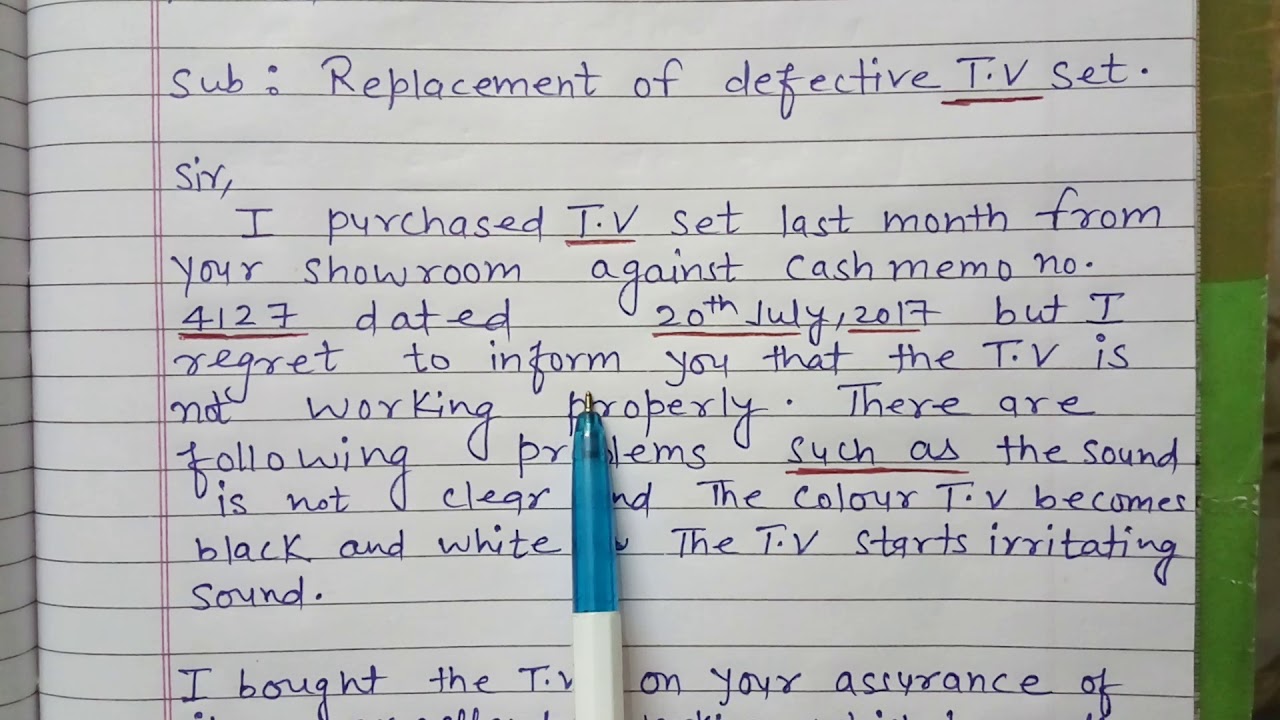 Sub: Replacement of defective T.V set.
Sir,
I purchased T.V set last month from
your showroom against cash memo no.
4127 dated 20th July, 2017 but I
regret to inform you that the T.V is
not working properly. There are
following problems such as the sound
is not clear and The colour T.V becomes
black and white The T.V starts irritating
sound.
I bought the T.V on your assurance of